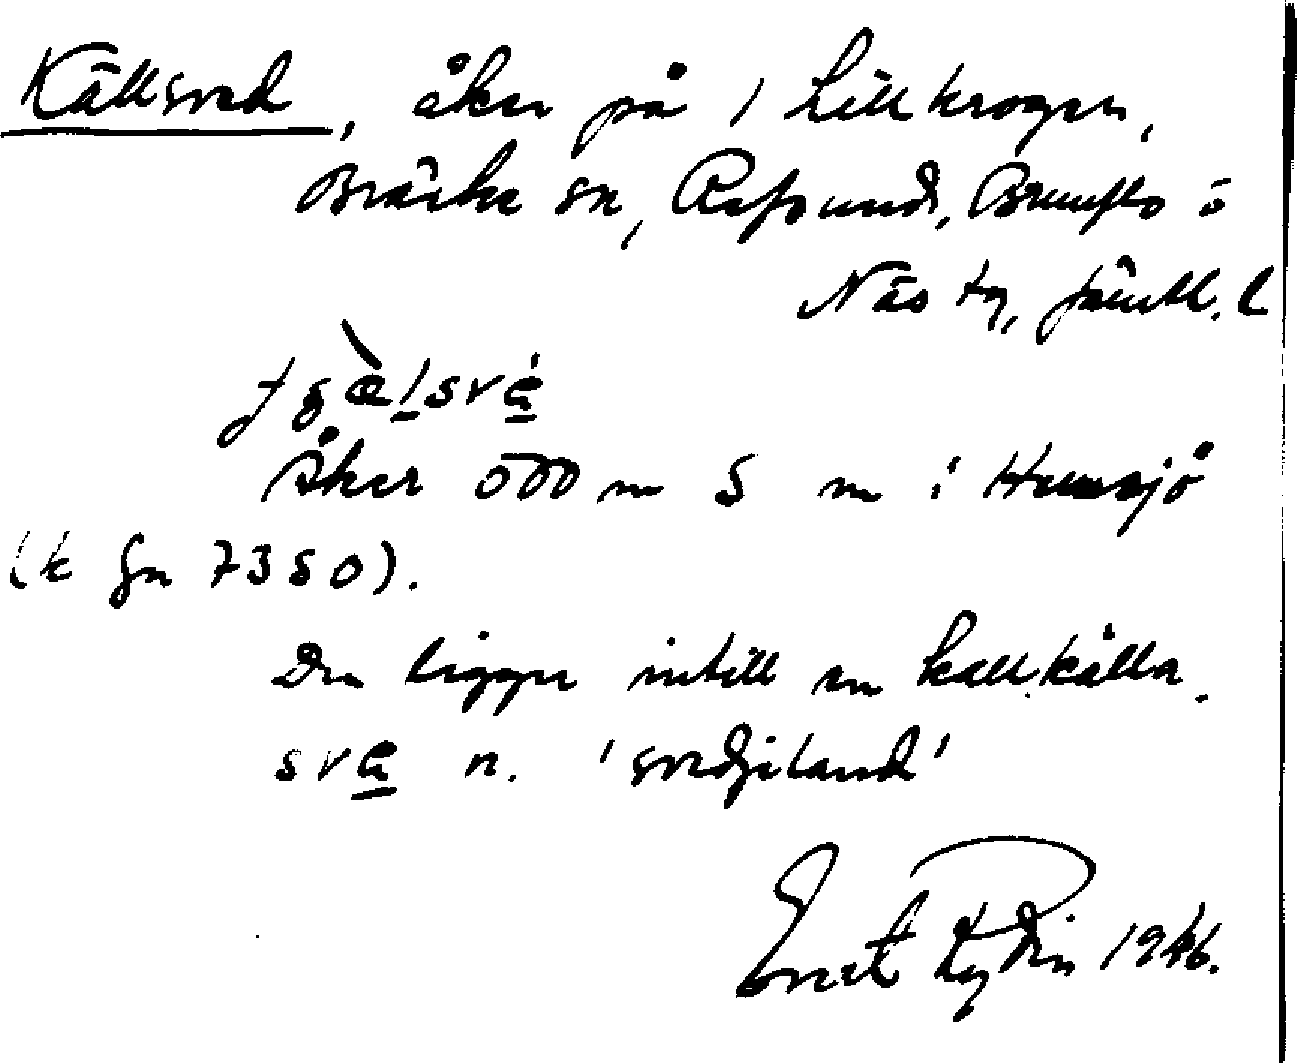 Källsved, åker på 1 Lillkrogen,
Bräcke sn, Refsunds, Brunflo o
Näs tg, Jämtl. l
Åker 500 m S m i Hunsjö
(k fn 7350).
Den ligger intill en kallkälla.
sve n. 'svedjeland'
1946.